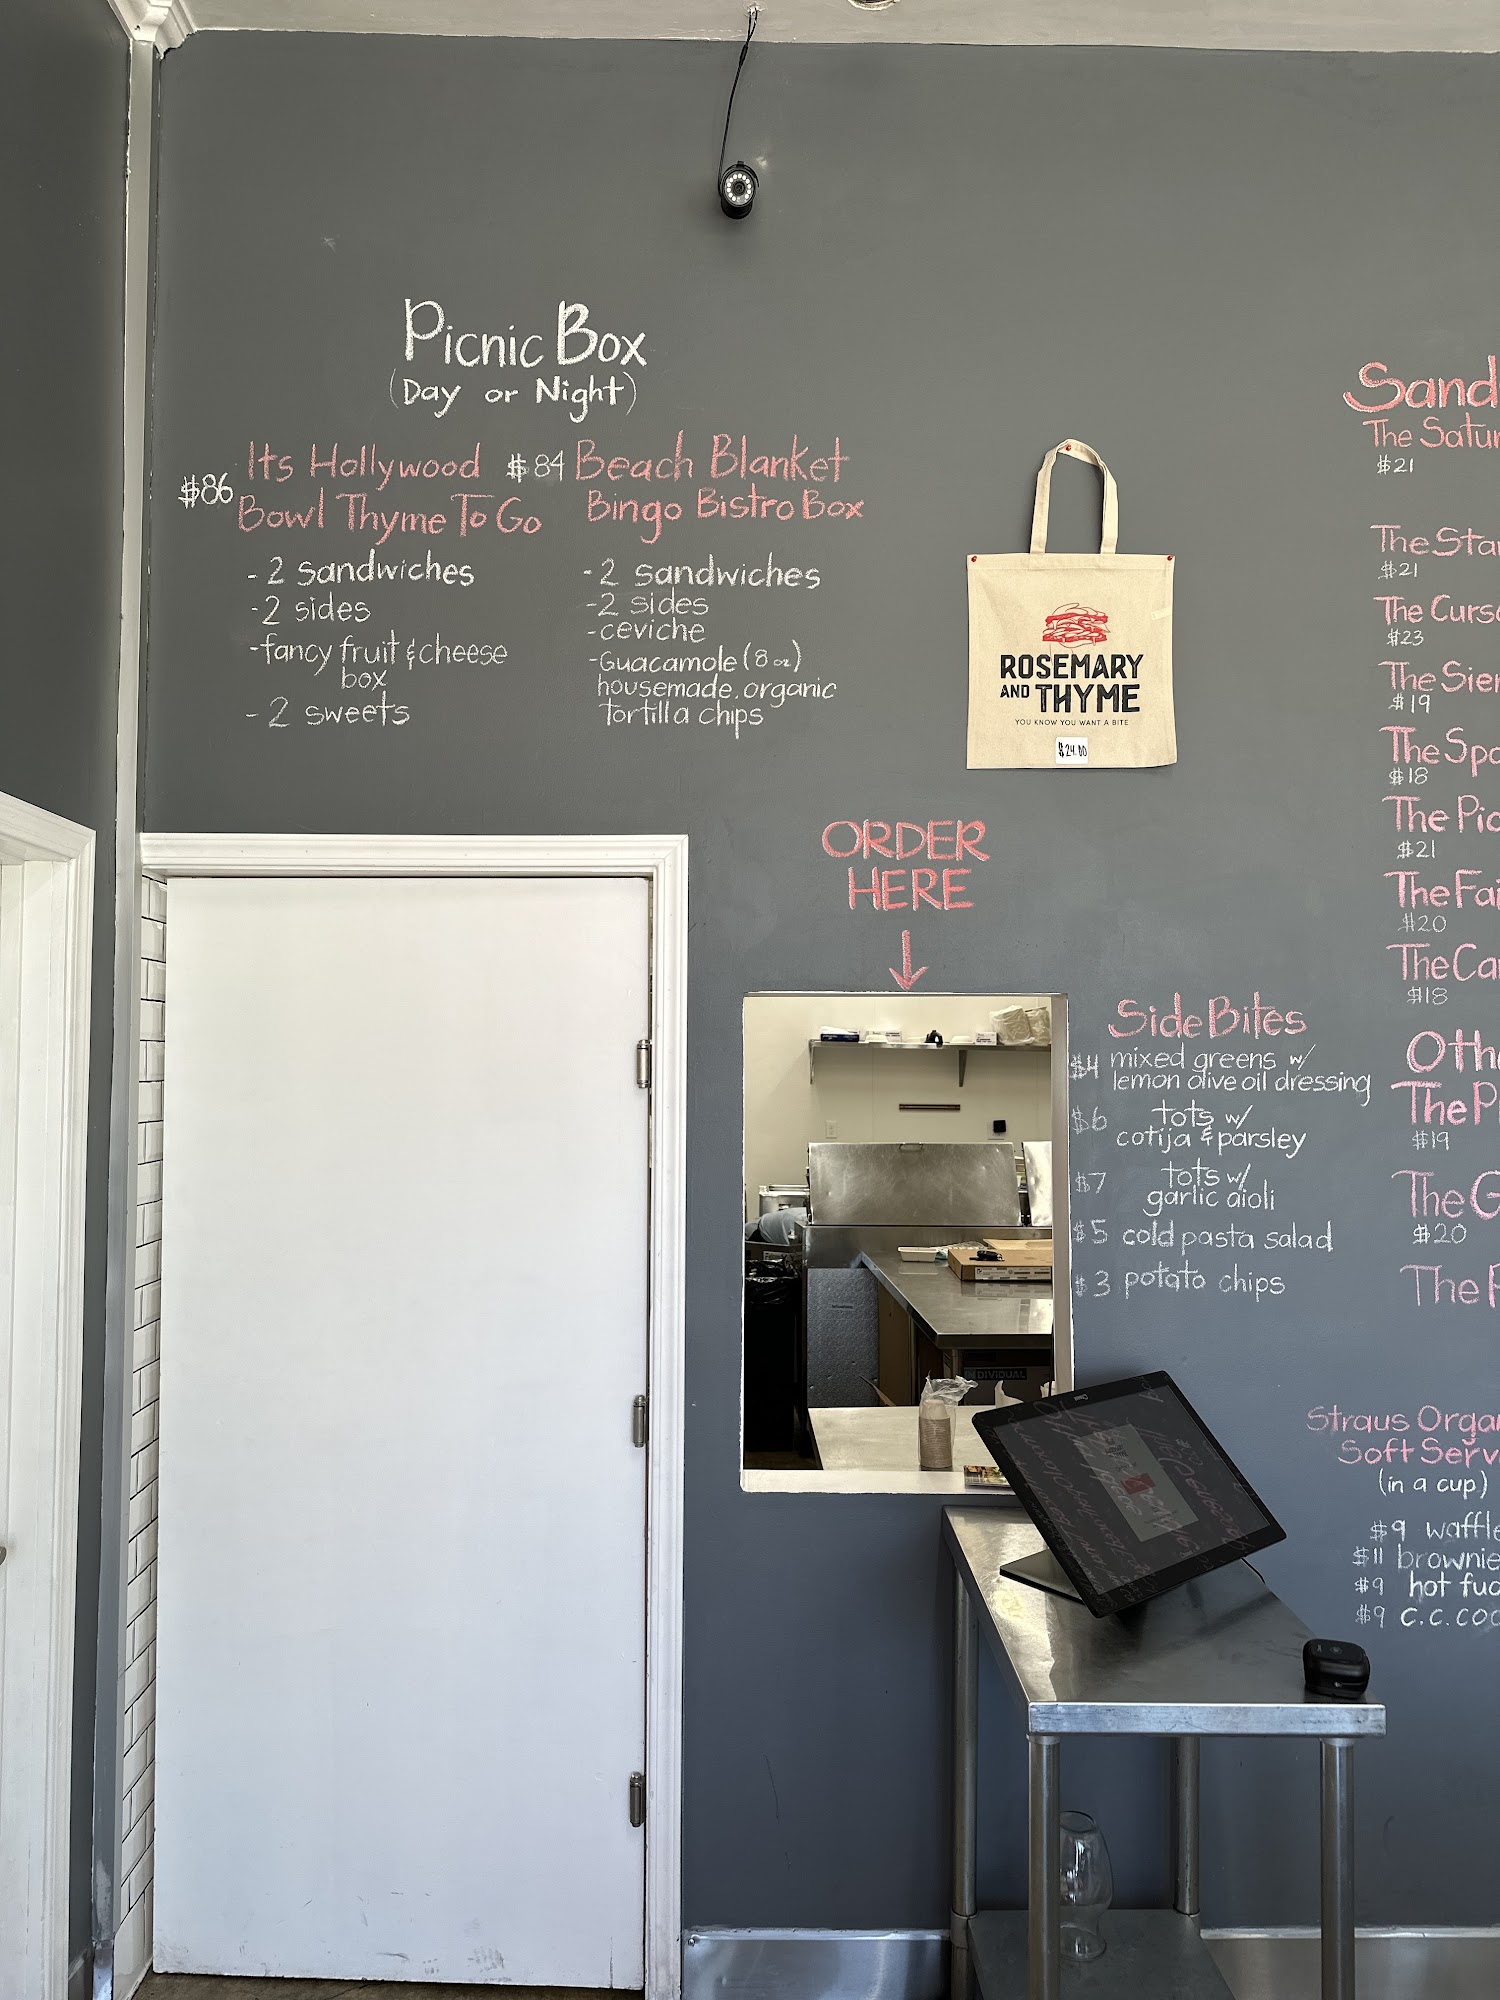 Picnic Box
(Day or Night)
$86
Its Hollywood
Bowl Thyme To Go
- 2 sandwiches
- 2 sides
- fancy fruit & cheese
box
- 2 sweets
$84 Beach Blanket
Bingo Bistro Box
- 2 sandwiches
- 2 sides
- ceviche
- Guacamole (8 oz)
housemade, organic
tortilla chips
ROSEMARY
AND THYME
YOU KNOW YOU WANT A BITE
$24.00
ORDER
HERE
Side Bites
$4 mixed greens w/
lemon olive oil dressing
$6 tots w/
cotija & parsley
$7 tots w/
garlic aioli
$5 cold pasta salad
$3 potato chips
INDIVIDUAL
Sand
The Satur
$21
The Sta
$21
The Curs
$23
The Sier
$19
The Spo
$18
The Pic
$21
The Fai
$20
The Car
$18
Oth
The P
$19
The G
$20
The
Straus Orga
Soft Serv
(in a cup)
$9 waffle
$11 brownie
$9 hot fud
$9 c.c. coo